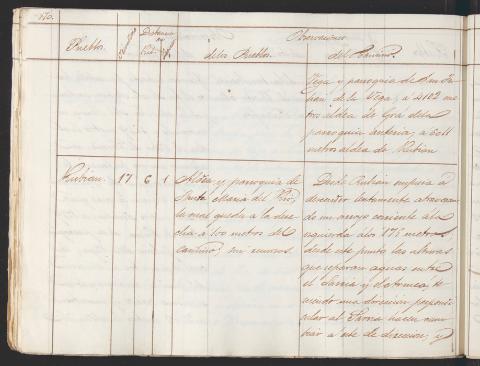 Observaciones
Pueblos.
de los Pueblos.
del Camino.
Vega y parroquia de San Ju-
lian de la Vega; a 4102 me-
tros aldea de Gra de la
parroquia anterior; a 6011
metros aldea de Rubian
Rubian. 17 6 1
Aldea y parroquia de
Santa Maria del
la cual queda a la dere-
cha a 100 metros del
camino; sin recursos.
Desde Rubian empieza a
descender lentamente atravesan-
do un arroyo corriente a la
izquierda a los 175 metros
desde este punto las alturas
que separan aguas entre
el Sarria y
una direccion perpendi-
cular al hacen cam-
biar a este de direccion, y